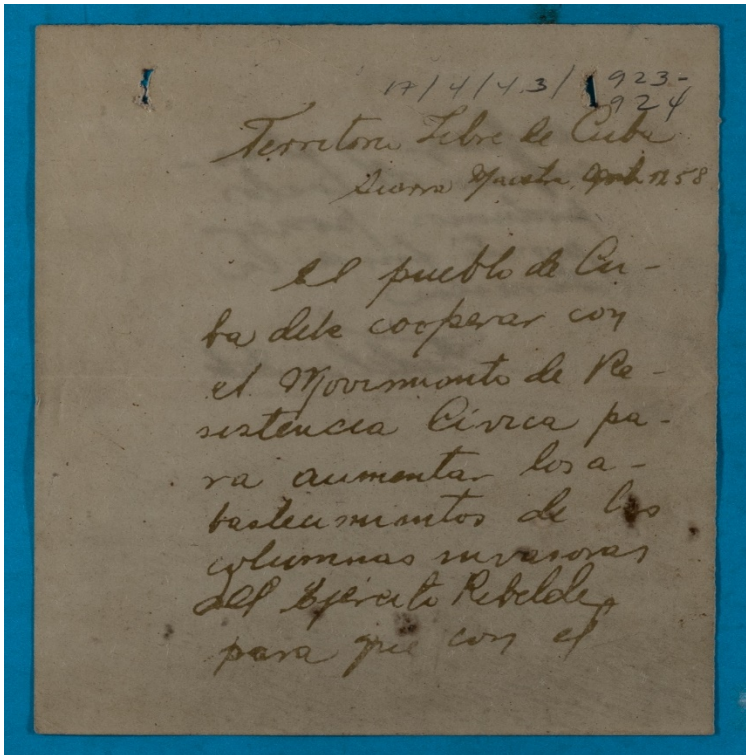 17/4/4.3/1 923-
924
Territorio Libre de Cuba
Sierra Maestra, 12 58
El pueblo de Cu-
ba debe cooperar con
el Movimiento de Re-
sistencia Cívica pa-
ra aumentar los a-
bastecimientos de las
columnas invasoras
del Ejército Rebelde,
para que con el